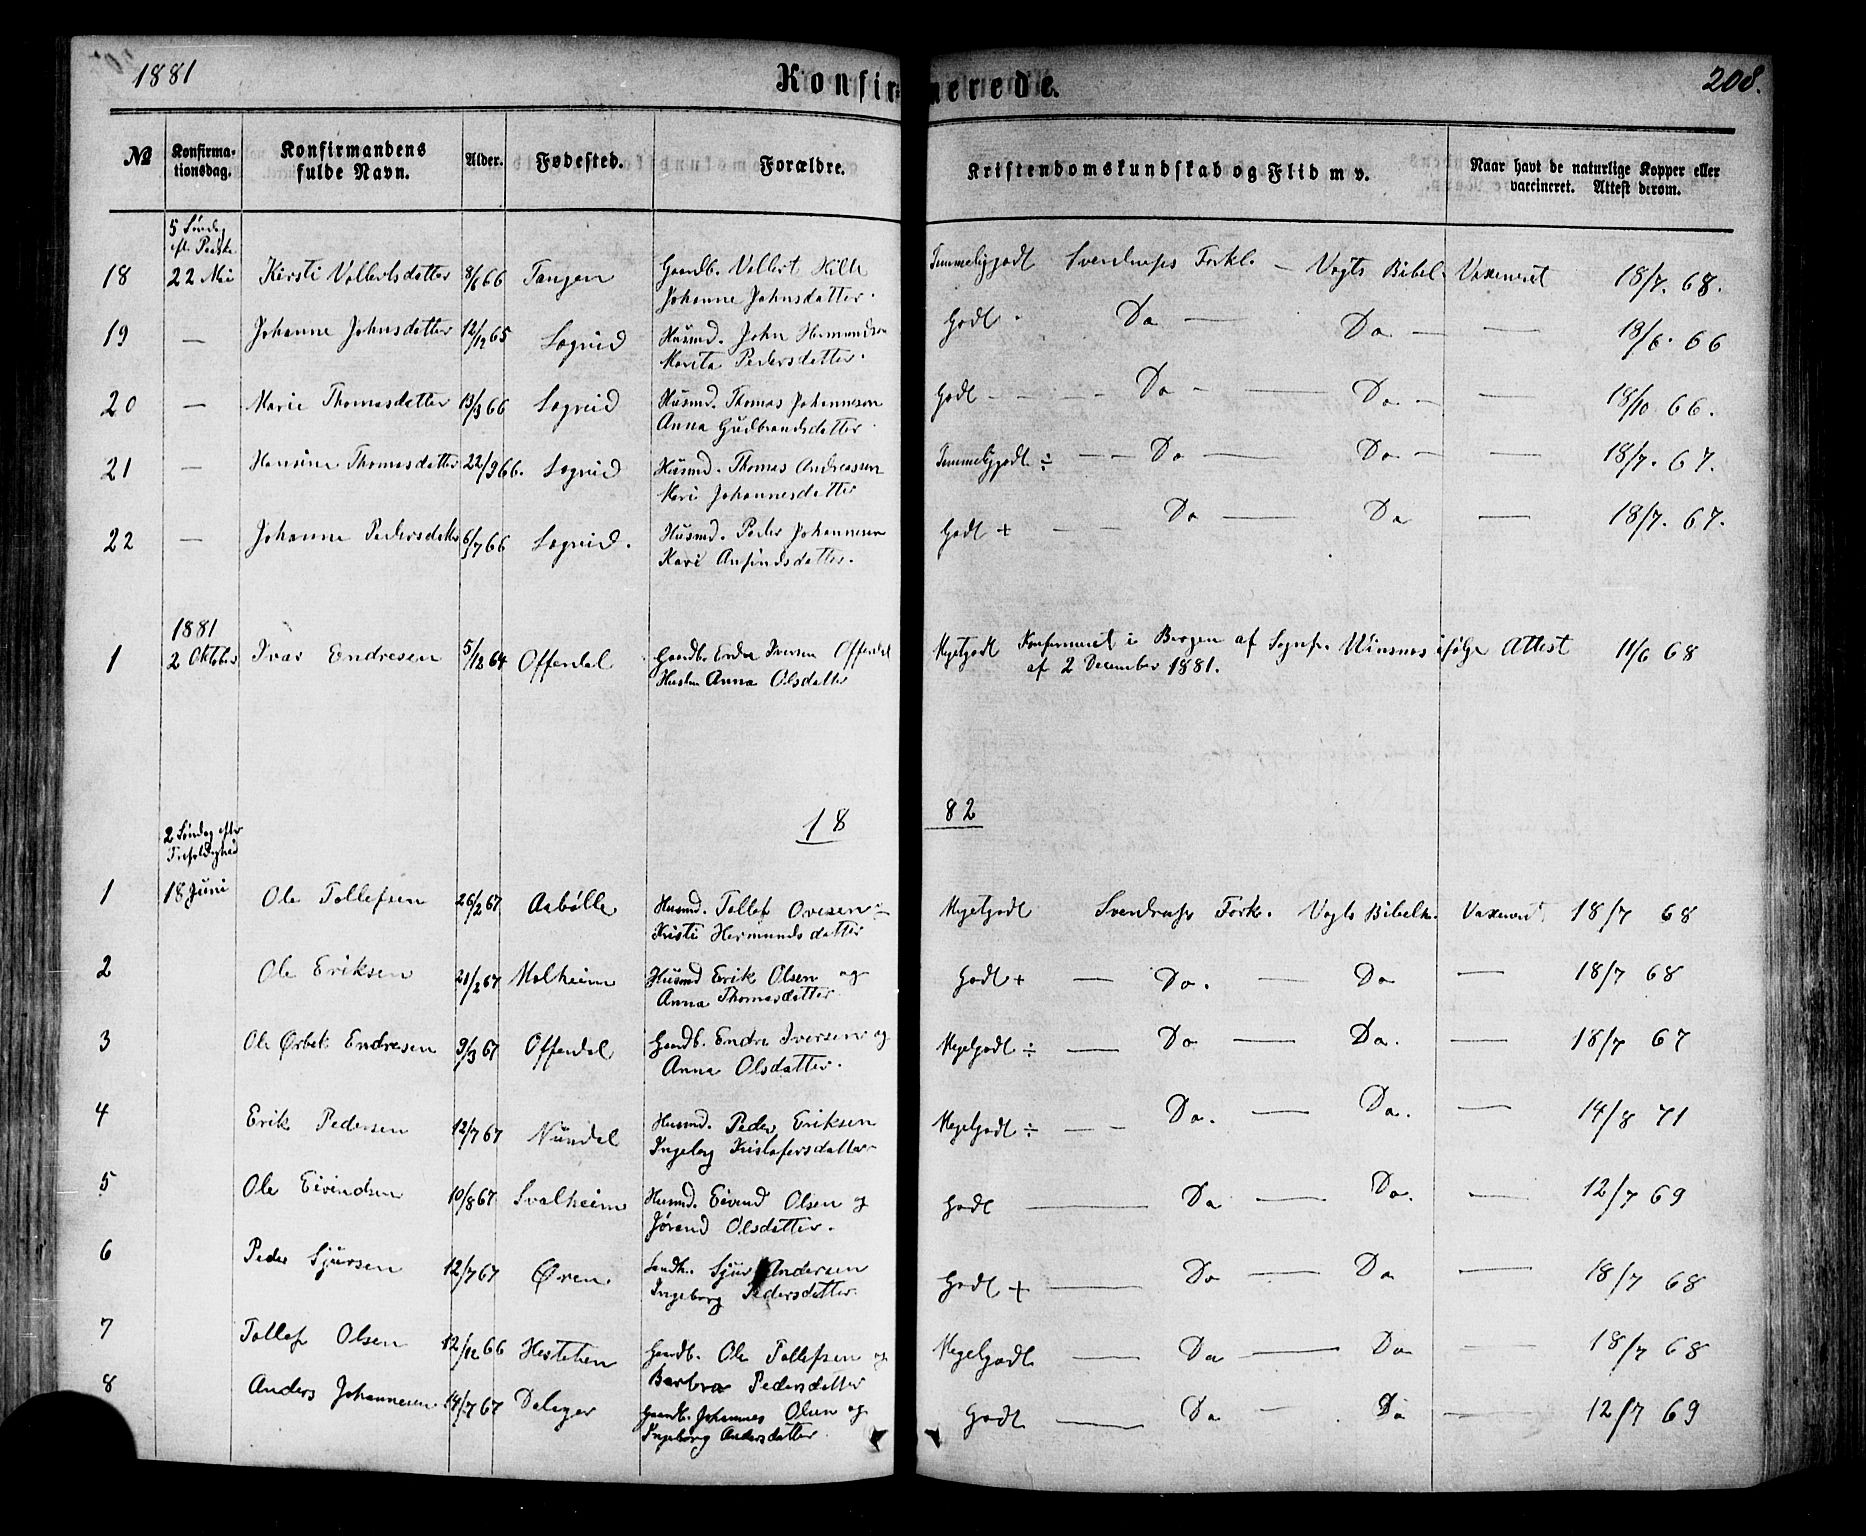 1881
Konfirmerede.
208.
№ Konfirma-tionsdag. Konfirmandens fulde Navn. Alder. Fødested. Forældre. Kristendomskundskab og Flid m v. Naar havt de naturlige Kopper eller vaccineret. Attest derom.
5 Søndag
eft. Paaske
18 22 Mai Kirsti Vollertsdatter 8/6 66 Tangen Gaardb. Vollert Temmeliggodt Sverdrups Forkl. — Vogts Bibel. Vaxeneret 18/7. 68.
Johanne Johnsdatter.
19 — Johanne Johnsdatter 12/12 65 Sogrid Husmd. John Hermundsen Godt. Do — Do — — 18/6. 66
Marita Pedersdatter.
20 — Marie Thomasdatter 13/3 66 Sogrid Husmd. Thomas Johannesen Godt - - - Do — Do — — 18/10 66.
Anna Gudbrandsdatter.
21 — Hansine Thomasdatter 22/9 66. Sogrid Husmd. Thomas Andreassen Temmeliggodt ÷ — Do — Do — — 18/7. 67.
Kari Johannesdatter
22 — Johanne Pedersdatter 6/7 66 Sogrid. Husmd. Peder Johannesen Godt + — Do — Do — 18/7. 67.
Kari Anfindsdatter.
1881
1 2 Oktober Ivar Endresen 5/12 64 Offerdal Gaardb. Endre Iversen Offerdal Megetgodt Konfirmeret i Bergen af Sognpr. Winsnes ifølge Attest 11/6 68
Hustru Anna Olsdatter af 2 December 1881.
18 82
2 Søndag efter
Trefoldighed
1 18 Juni Ole Tollefsen 26/2 67 Aabølle Husmd. Tollef Ovesen Megetgodt Sverdrups Fork. Vogts Bibelh. Vaxeneret 18/7 68
Kristi Hermundsdatter
2 Ole Eriksen 21/2 67 Molheim Husmd Erik Olsen og Godt + — Do. — Do — 18/7 68
Anna Thomasdatter
3 Ole Ørbek Endresen 9/3 67 Offerdal Gaardb. Endre Iversen og Megetgodt ÷ — Do — Do. — 18/7 67
Anna Olsdatter.
4 Erik Pedersen 12/7 67 Nundal Husmd. Peder Eriksen Megetgodt ÷ — Do. — Do. — 14/8 71
Ingeborg Kristofersdatter
5 Ole Eivindsen 10/8 67 Svalheim Husmd. Eivind Olsen og Godt — Do — Do. — 12/7 69
Jørand Olsdatter.
6 Peder Sjursen 12/7 67 Øren Sjur Andersen Godt + — Do — Do — 18/7 68
Ingeborg Pedersdatter.
7 Tollef Olsen 12/12 66 Hestetun Gaardb. Ole Tollefsen og Megetgodt — Do — Do — 18/7 68
Barbra Pedersdatter
8 Anders Johannesen 14/7 67 Deleger Gaardb. Johannes Olsen og Godt — Do — Do — 12/7 69
Ingeborg Andersdatter.